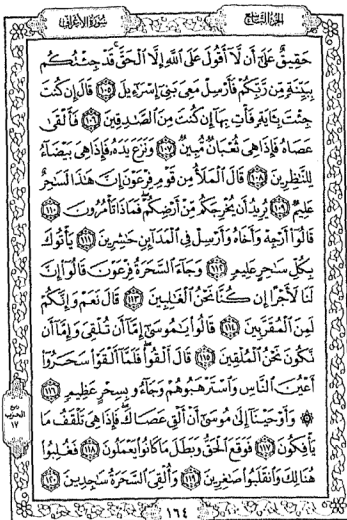 الجزء التاسع
سورة الأعراف
حَقِيقٌ عَلَىٰٓ أَن لَّآ أَقُولَ عَلَى ٱللَّهِ إِلَّا ٱلۡحَقَّۚ قَدۡ جِئۡتُكُم
بِبَيِّنَةٖ مِّن رَّبِّكُمۡ فَأَرۡسِلۡ مَعِيَ بَنِيٓ إِسۡرَٰٓءِيلَ ١٠٥ قَالَ إِن كُنتَ
جِئۡتَ بِـَٔايَةٖ فَأۡتِ بِهَآ إِن كُنتَ مِنَ ٱلصَّٰدِقِينَ ١٠٦ فَأَلۡقَىٰ
عَصَاهُ فَإِذَا هِيَ ثُعۡبَانٞ مُّبِينٞ ١٠٧ وَنَزَعَ يَدَهُۥ فَإِذَا هِيَ بَيۡضَآءُ
لِلنَّٰظِرِينَ ١٠٨ قَالَ ٱلۡمَلَأُ مِن قَوۡمِ فِرۡعَوۡنَ إِنَّ هَٰذَا لَسَٰحِرٌ
عَلِيمٞ ١٠٩ يُرِيدُ أَن يُخۡرِجَكُم مِّنۡ أَرۡضِكُمۡۖ فَمَاذَا تَأۡمُرُونَ ١١٠
قَالُوٓاْ أَرۡجِهۡ وَأَخَاهُ وَأَرۡسِلۡ فِي ٱلۡمَدَآئِنِ حَٰشِرِينَ ١١١ يَأۡتُوكَ
بِكُلِّ سَٰحِرٍ عَلِيمٖ ١١٢ وَجَآءَ ٱلسَّحَرَةُ فِرۡعَوۡنَ قَالُوٓاْ إِنَّ
لَنَا لَأَجۡرًا إِن كُنَّا نَحۡنُ ٱلۡغَٰلِبِينَ ١١٣ قَالَ نَعَمۡ وَإِنَّكُمۡ
لَمِنَ ٱلۡمُقَرَّبِينَ ١١٤ قَالُواْ يَٰمُوسَىٰٓ إِمَّآ أَن تُلۡقِيَ وَإِمَّآ أَن
نَّكُونَ نَحۡنُ ٱلۡمُلۡقِينَ ١١٥ قَالَ أَلۡقُواْۖ فَلَمَّآ أَلۡقَوۡاْ سَحَرُوٓاْ
أَعۡيُنَ ٱلنَّاسِ وَٱسۡتَرۡهَبُوهُمۡ وَجَآءُو بِسِحۡرٍ عَظِيمٖ ١١٦
۞ وَأَوۡحَيۡنَآ إِلَىٰ مُوسَىٰٓ أَنۡ أَلۡقِ عَصَاكَۖ فَإِذَا هِيَ تَلۡقَفُ مَا
يَأۡفِكُونَ ١١٧ فَوَقَعَ ٱلۡحَقُّ وَبَطَلَ مَا كَانُواْ يَعۡمَلُونَ ١١٨ فَغُلِبُواْ
هُنَالِكَ وَٱنقَلَبُواْ صَٰغِرِينَ ١١٩ وَأُلۡقِيَ ٱلسَّحَرَةُ سَٰجِدِينَ ١٢٠
الحزب
١٧
١٦٤